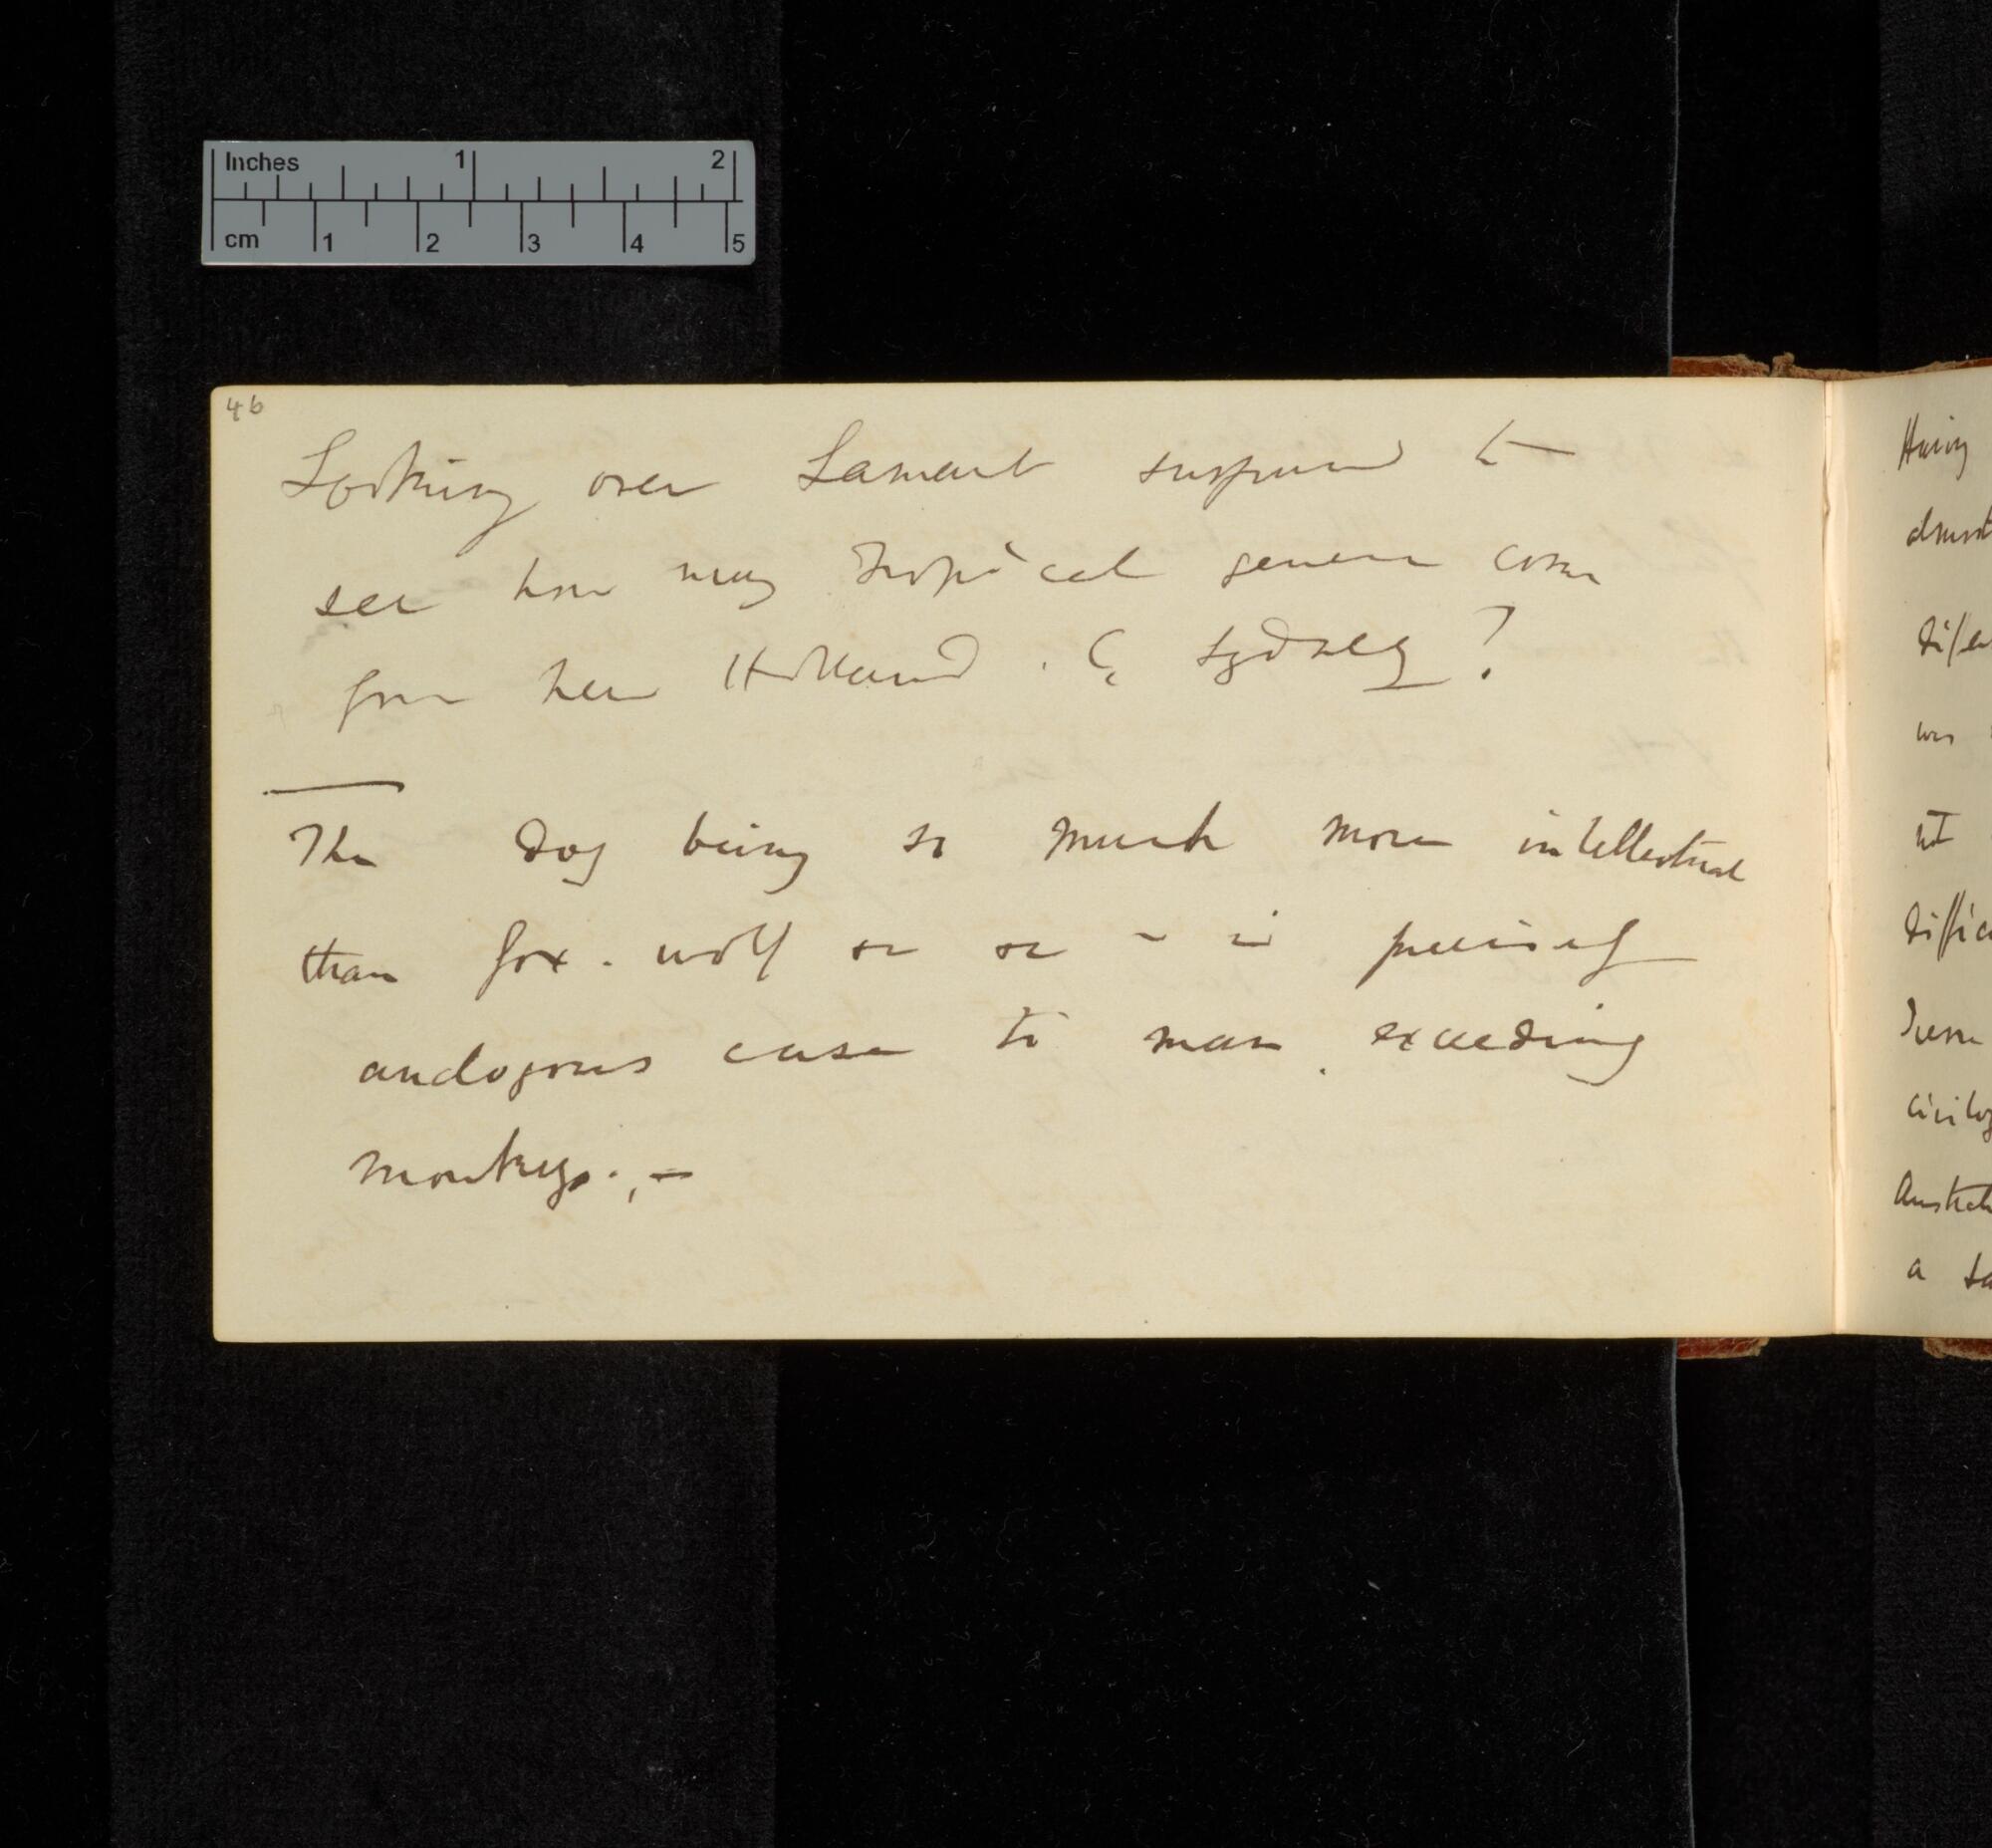 Inches 1 2
cm 1 2 3 4 5
46
Looking over Lamarck surprised to
see how many tropical genera come
from New Holland. C. Sydney?
The dog being so much more intellectual
than fox. wolf &c &c — is precisely
analogous case to man. exceeding
monkeys.,—
Having
almost
was
not
a